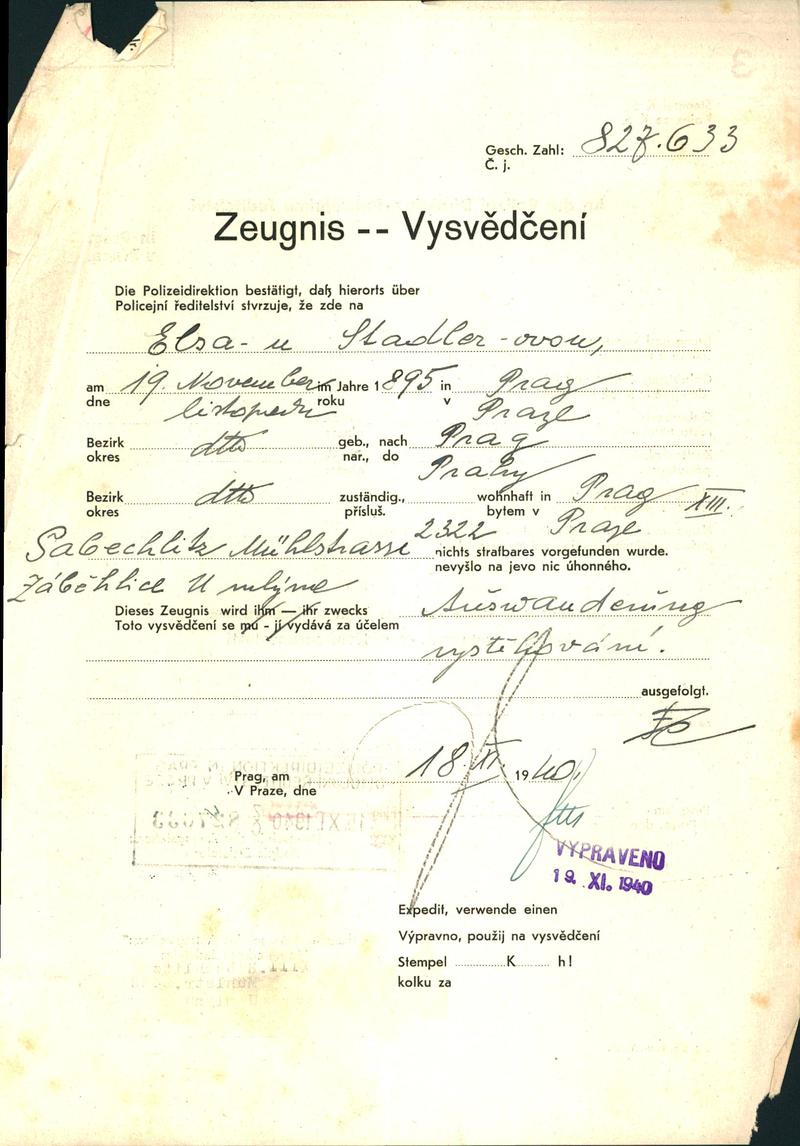 Gesch. Zahl: 827.633
Č. j.
Zeugnis -- Vysvědčení
Die Polizeidirektion bestätigt, daß hierorts über
Policejní ředitelství stvrzuje, že zde na
Elsa-u Stadler-ovou,
am 19. November im Jahre 1895 in Prag
dne listopadu roku v Praze
Bezirk dtto geb., nach Prag
okres nar., do Prahy
Bezirk dtto zuständig., wohnhaft in Prag XIII.
okres přísluš. bytem v Praze
Sabechlitz Mühlstrasse 2322 nichts strafbares vorgefunden wurde.
nevyšlo na jevo nic úhonného.
Záběhlice U mlýna
Dieses Zeugnis wird ihm — ihr zwecks Auswanderung
Toto vysvědčení se mu - jí vydává za účelem
vystěhování.
ausgefolgt.
Prag, am 18. XI. 1940.
V Praze, dne
VYPRAVENO
19. XI. 1940
Expedit, verwende einen
Výpravno, použij na vysvědčení
Stempel K h!
kolku za